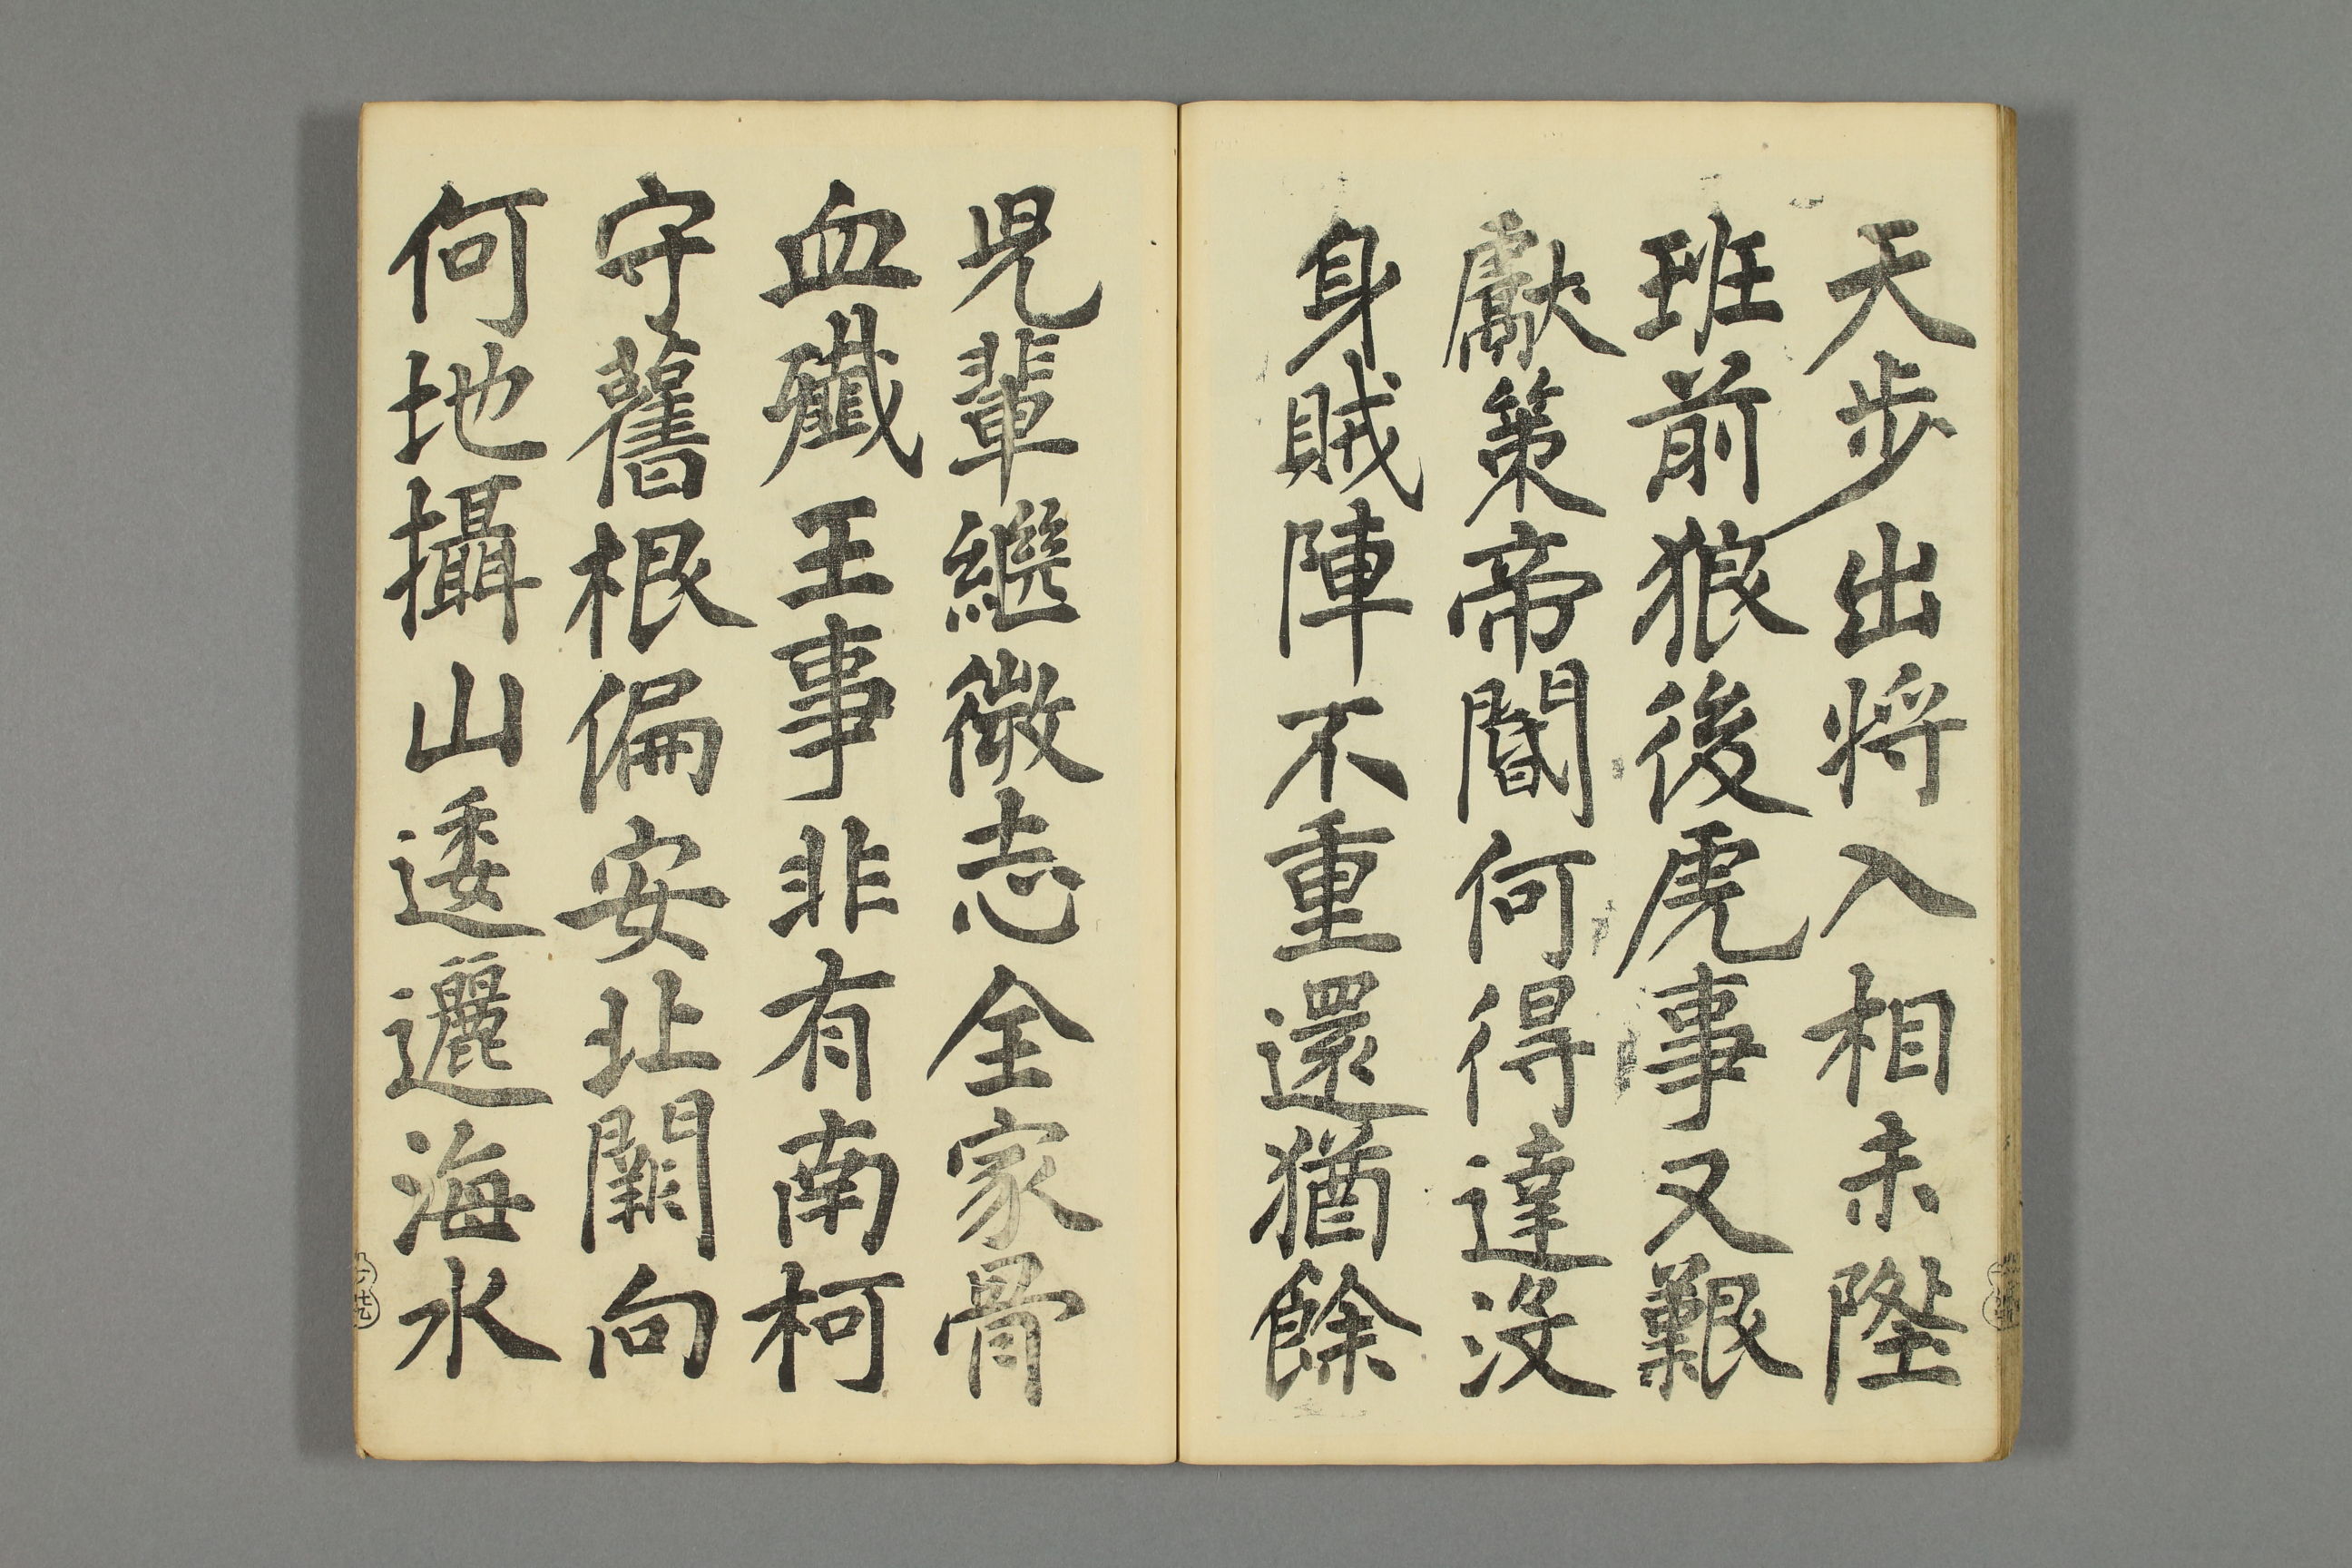 天步出将入相未陞
班前狼後虎事又艱
獻策帝閽何得達没
身賊陣不重還猶餘
児輩継微志全家骨
血殲王事非有南柯
守舊根偏安北闕向
何地攝山逶邐海水